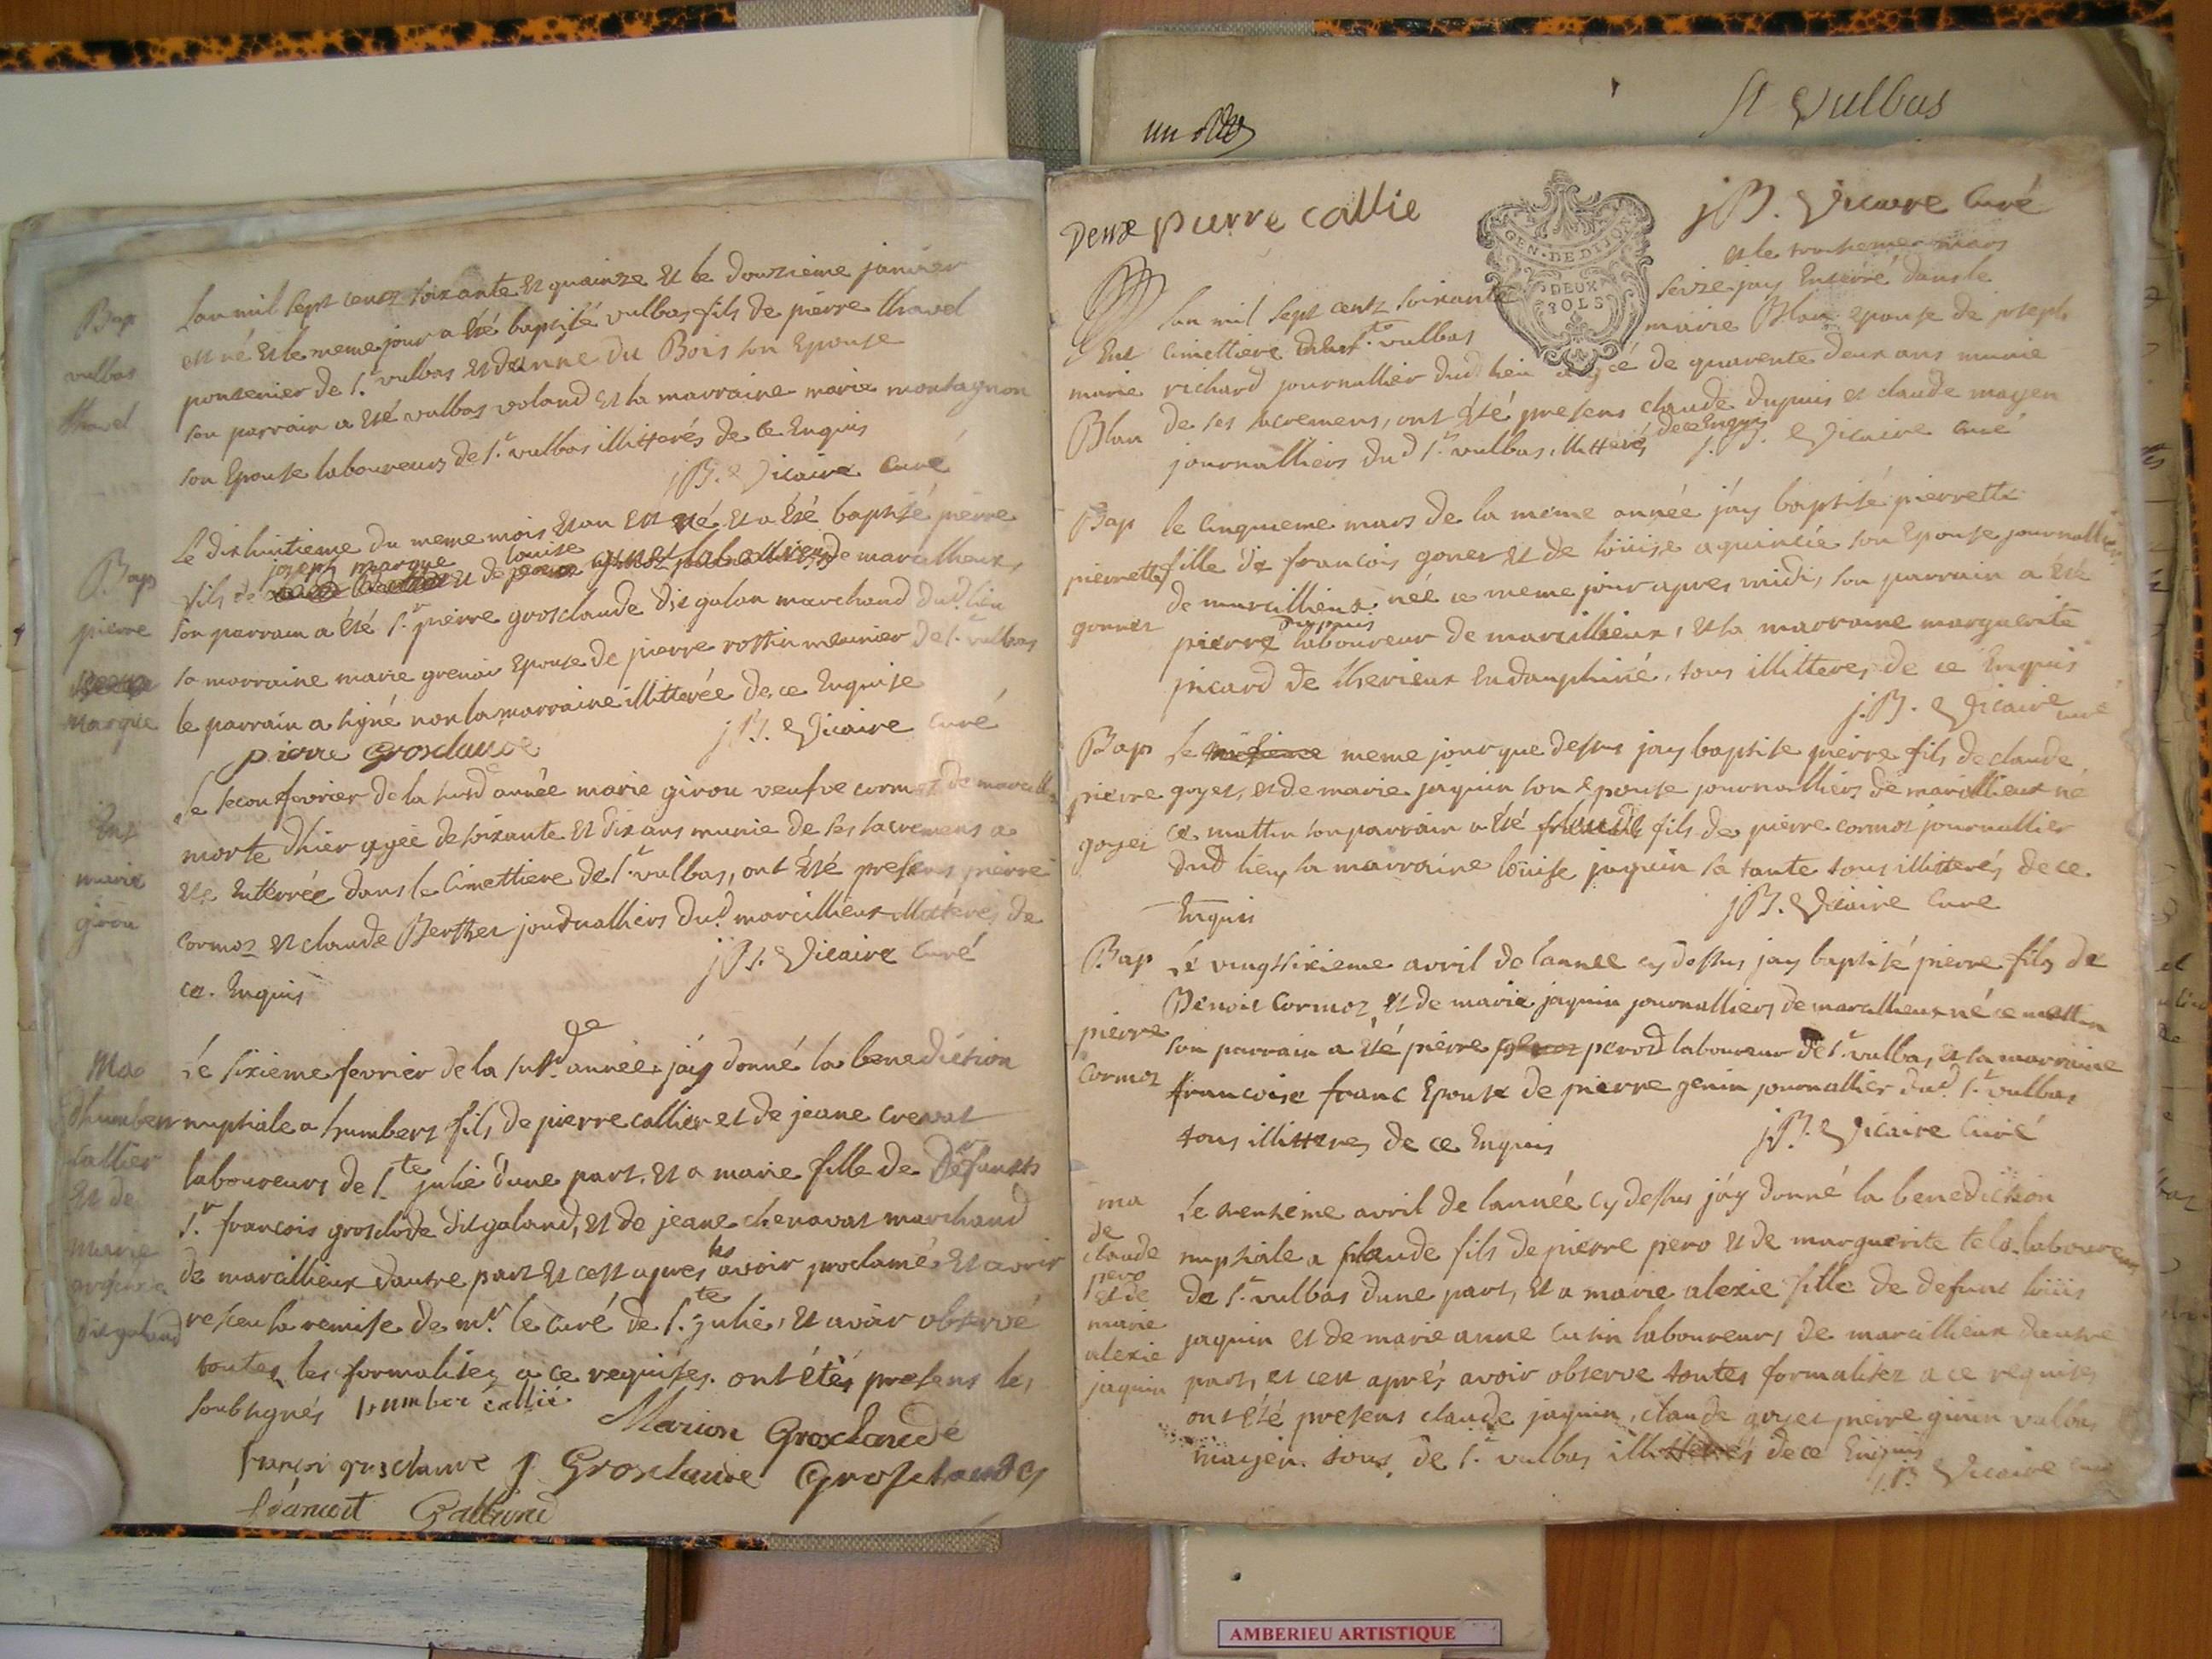 Bap
vulbas
thavel
Lan mil sept cents soixante et quainze et le douzieme janvier
est né et le meme jour a été baptisé vulbas fils de pierre thavel
pontenier de St vulbas et danne du Bois son Epouse
son parrain a été vulbas voland et la marraine marie montagnon
son Epouse laboureurs de St vulbas illitterés de ce Enquis
jB. Vicaire Curé
Bap
pierre
marque
Le dixhuitieme du meme mois et an est né et a été baptisé pierre
joseph marque louise
fils de et de de marcillieux
son parrain a été Sr pierre grosclaude dit galan marchand dud. lieu
sa marraine marie grenoir Epouse de pierre rostin meunier de St vulbas
le parrain a signé non la marraine illitterée de ce Enquise
jB. Vicaire Curé
pierre Grosclaude
Ent
marie
girou
Le secon fevrier de la susd année marie girou veufve cormoz de marcill
morte dhier agée de soixante et dix ans munie de ses sacremens a
ete Enterrée dans le Cimettiere de St vulbas, ont été presens pierre
cormoz et claude Berthet journalliers dud. marcillieux illiterés de
ce. Enquis
jB. Vicaire Curé
Mar
dhumbert
Callier
et de
marie
dit galand
Le sixieme fevrier de la susd. année, jáy donné la benediction
nuptiale a humbert fils de pierre callier et de jeane crevat
laboureurs de Ste julie dune part, et a marie fille de Défunts
Sr francois grosclode dit galand, et de jeane chenavat marchand
de marcillieux dautre part et cest apres les avoir proclamés et avoir
resceu la remise de mr. le curé de Ste julie, et avoir observé
toutes les formalitez a ce requises. ont étés presens les
soubsignés humber callié
Marion Grosclaude
françoi grosclaude J Grosclaude Grosclaudes
francoit Galland
un
St Vulbas
Deux pierre callie
GEN. DE DIJON
DEUX
SOLS
jB. Vicaire Curé
et le troisieme mars
Lan mil sept cents soixante seize jay Enterré dans le
Ent
marie
Blan
Cimettiere de St. vulbas marie Blan epouse de joseph
richard journallier dud. lieu agée de quarente deux ans munie
de ses sacremens, ont été presens claude dupuis et claude mayen
journalliers dud St vulbas, illitterés de ce Enquis J.B. Vicaire curé
Bap
pierrette
gonnet
le Cinquieme mars de la meme année jáy baptisé pierrette
fille de francois gonet et de loüise aquintée son Epouse journalliers
de marcillieux née ce meme jour apres midi, son parrain a été
pierre dupuis laboureur de marcillieux, et la marraine marguerite
picard de therieux en dauphiné, tous illitteres de ce Enquis
j.B. Vicaire curé
Bap
pierre
goyet
Le meme jour que dessus jay baptisé pierre fils de claude
goyet, et de marie jaquin son Epouse journalliers de marcillieux né
ce mattin son parrain a été claude fils de pierre cormoz journallier
dud lieu, sa marraine loüise jaquin sa tante tous illitterés de ce.
Enquis
jB. Vicaire Cure
Bap
pierre
Cormoz
Le vingt sixieme avril de lannée cy dessus jay baptisé pierre fils de
Benoit Cormoz, et de marie jaquin journalliers de marcillieux né ce mattin
son parrain a été pierre perod laboureur de St. vulbas, et sa marraine
francoise franc Epouse de pierre genin journallier dud. St. vulbas
tous illitteres de ce Enquis
jB. Vicaire Curé
ma
de
claude
pero
et de
marie
alexie
jaquin
Le trentieme avril de lannée cy dessus jáy donné la benediction
nuptiale a claude fils de pierre pero et de marguerite tela laboureurs
de St. vulbas dune part, et a marie alexie fille de defunt loüis
jaquin et de marie anne Cusin laboureurs de marcillieux dautre
part, et cest aprés avoir observe toutes formalitez a ce requises
ont été presens claude jaquin, claude goyet pierre girin vulbas
mayen. tous de St. vulbas illitterés de ce Enquis
J.B. Vicaire Curé
AMBERIEU ARTISTIQUE